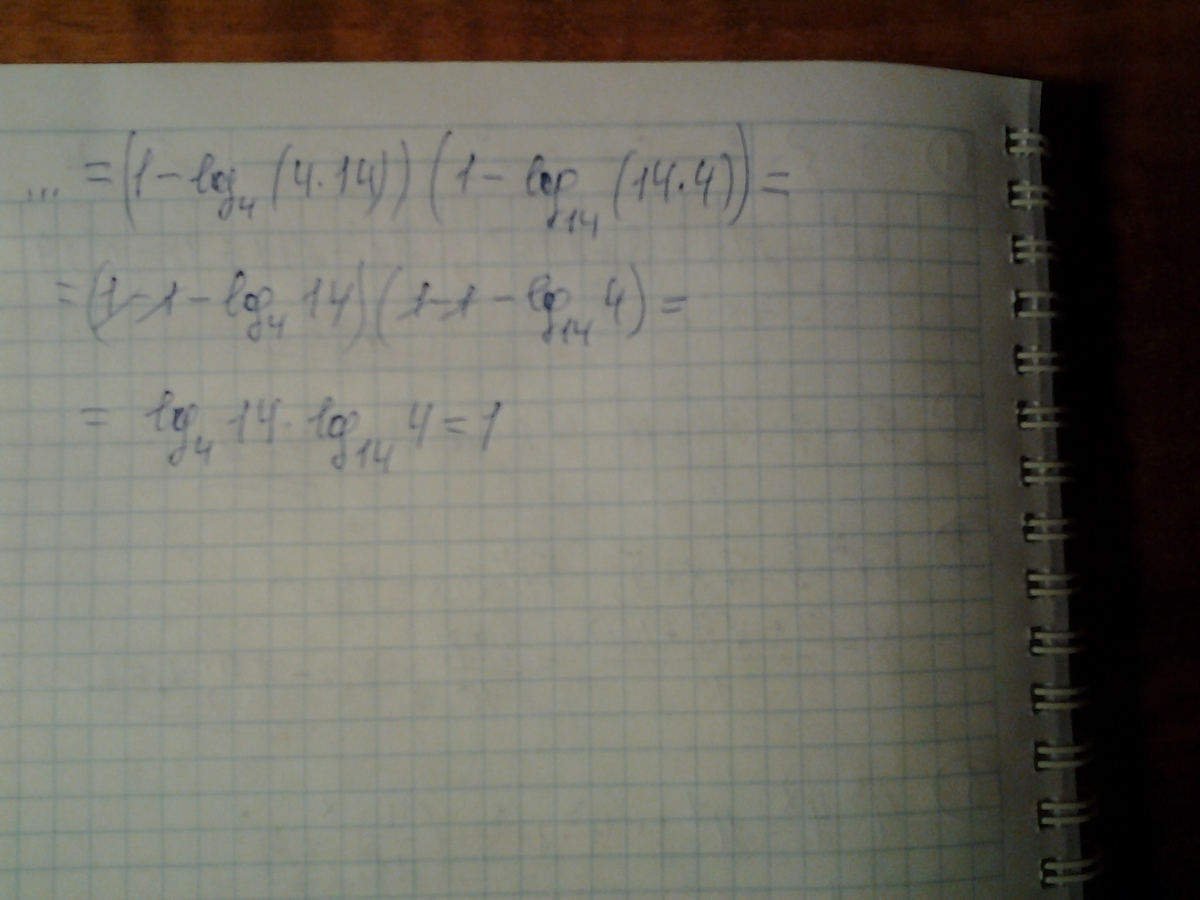 ... = (1 - log₄ (4·14)) (1 - log₁₄ (14·4)) =
= (1 - 1 - log₄ 14) (1 - 1 - log₁₄ 4) =
= log₄ 14 · log₁₄ 4 = 1